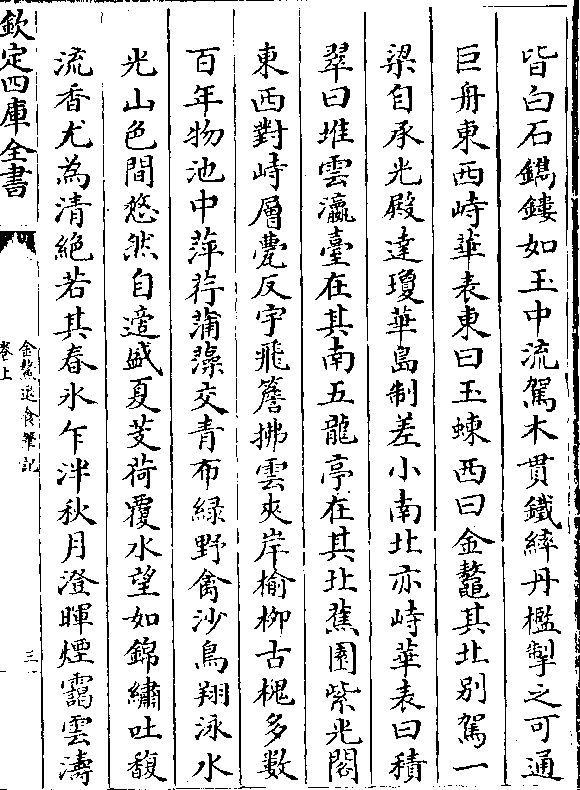 皆白石鐫鏤如玉中流駕木貫鐵繂丹檻掣之可通
巨舟東西峙華表東曰玉蝀西曰金鰲其北別駕一
梁自承光殿達瓊華島制差小南北亦峙華表曰積
翠曰堆雲瀛臺在其南五龍亭在其北蕉園紫光閣
東西對峙層甍反宇飛簷拂雲夾岸榆柳古槐多數
百年物池中萍荇蒲藻交青布綠野禽沙鳥翔泳水
光山色間悠然自適盛夏芰荷覆水望如錦繡吐馥
流香尤為清絕若其春冰乍泮秋月澄暉煙靄雲濤
欽定四庫全書
金鰲退食筆記
卷上
三